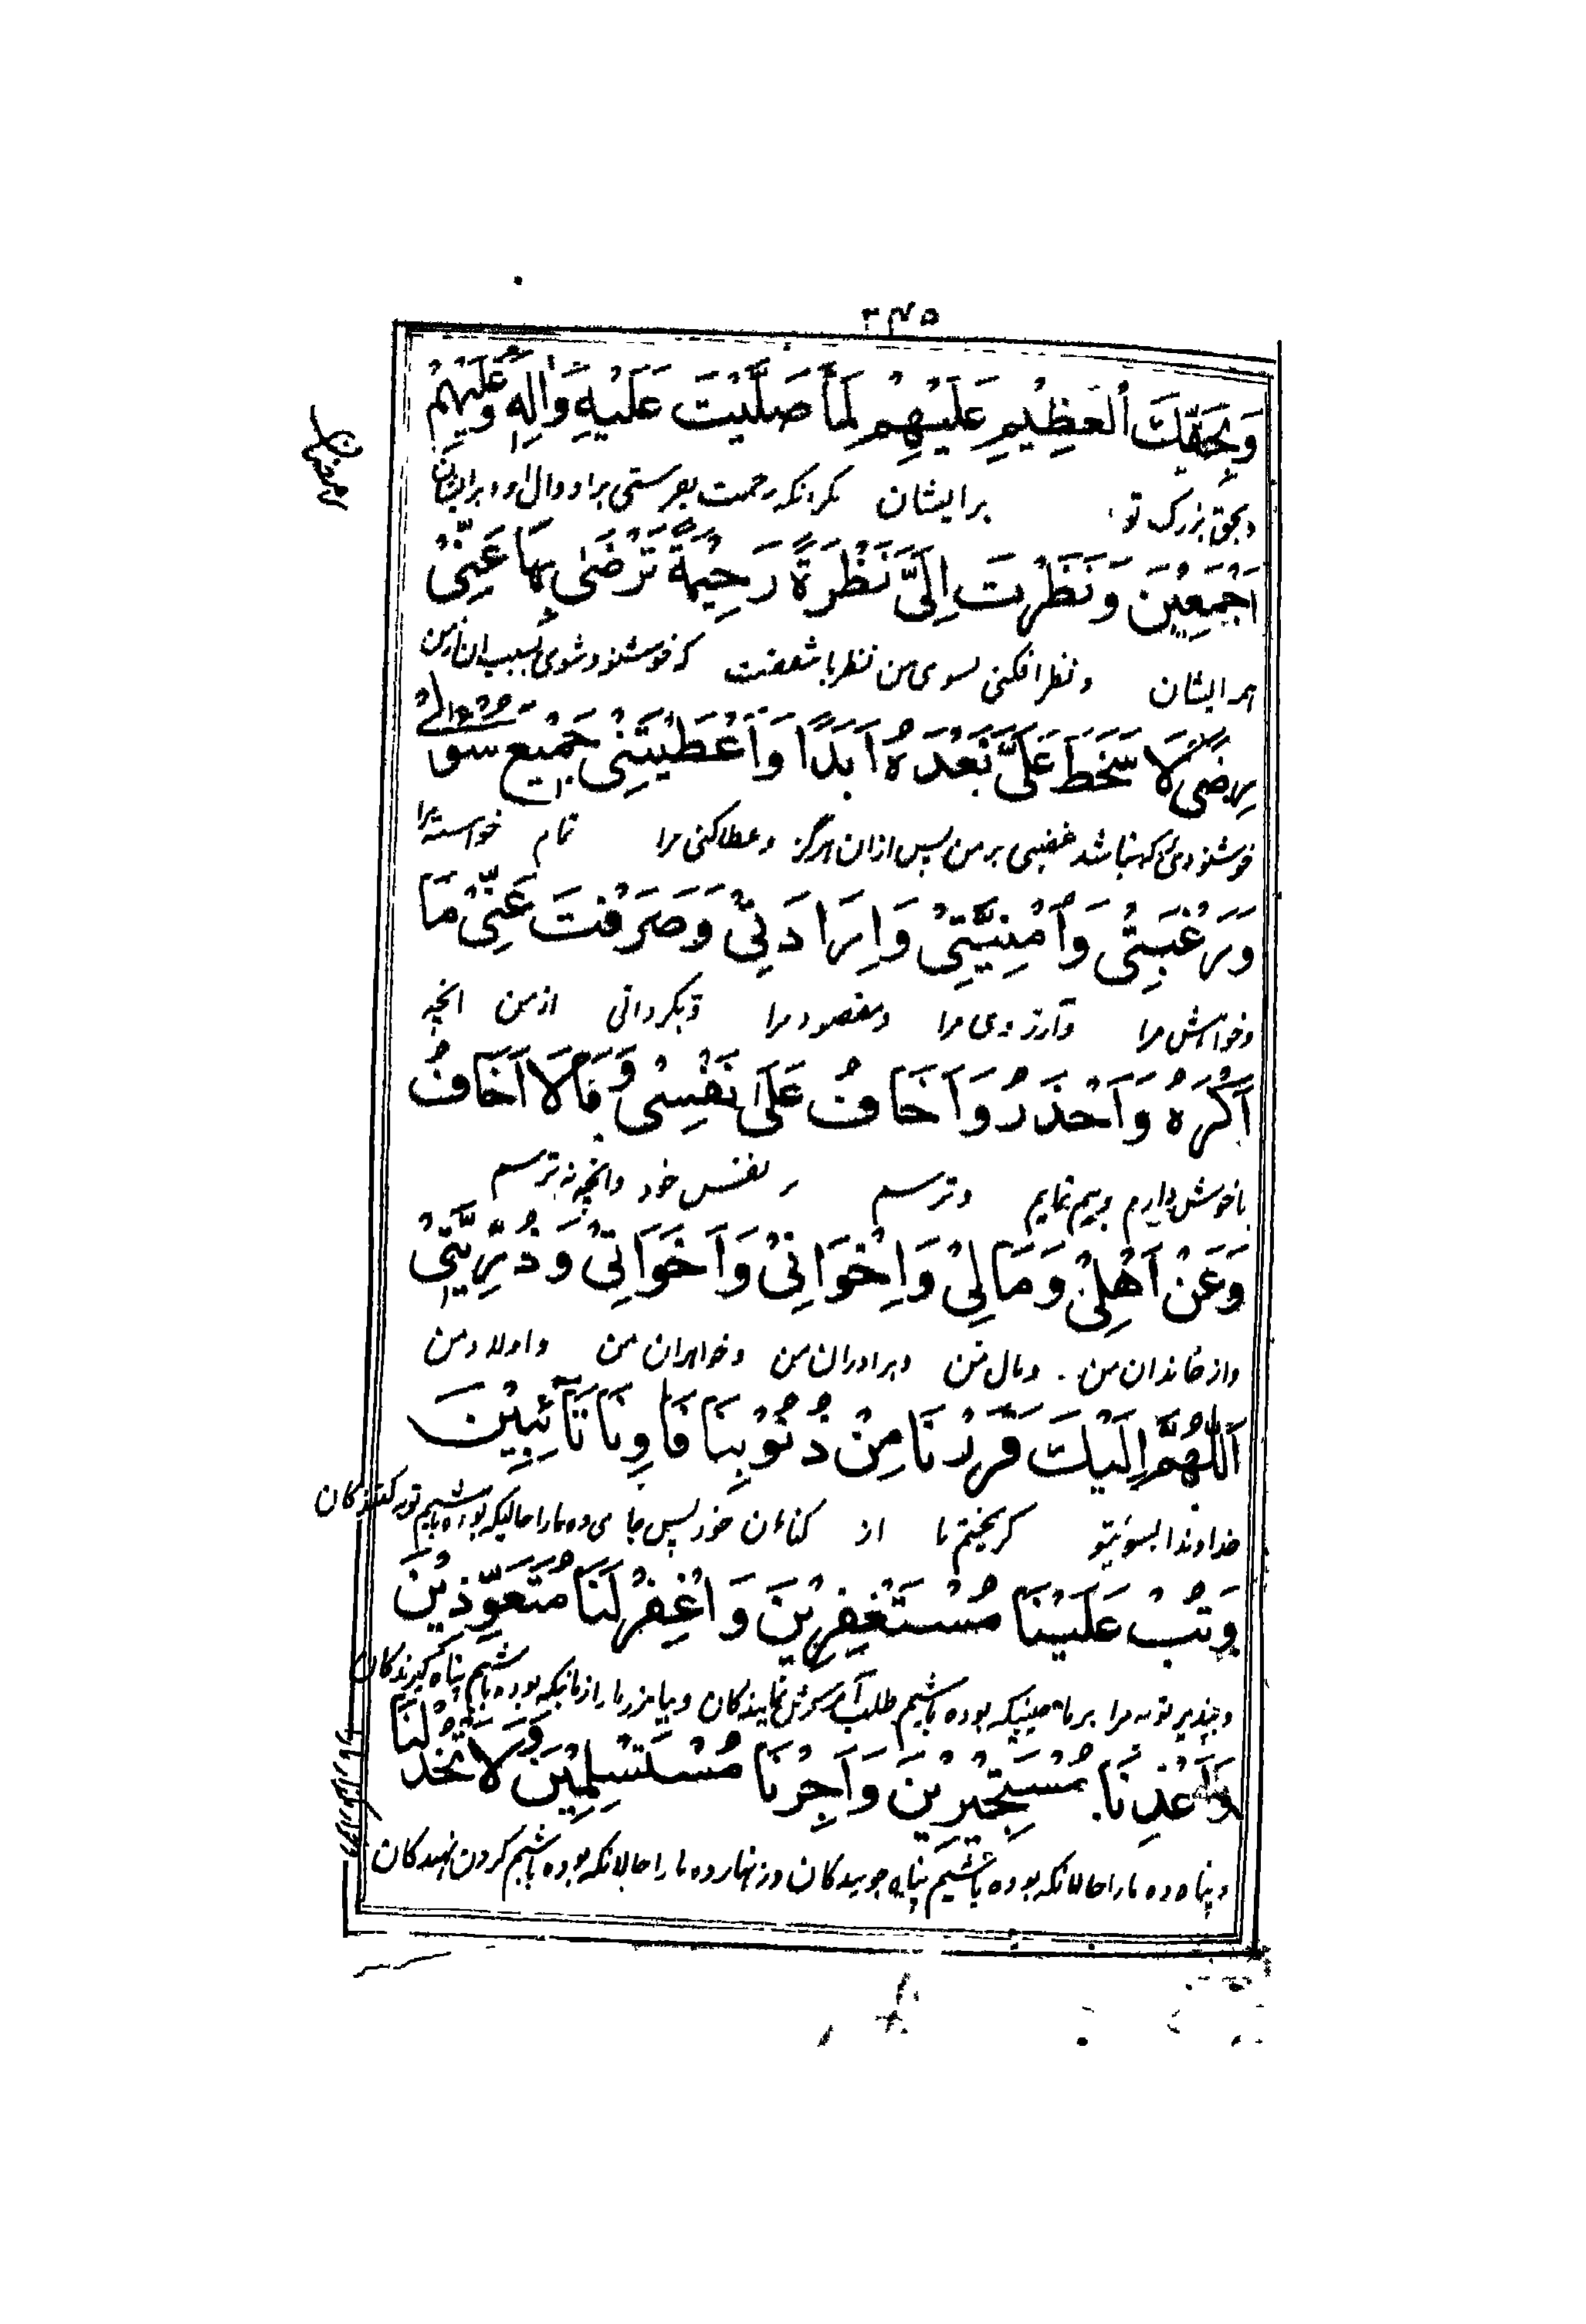 ۳۴۵
وَبِحَقِّكَ الْعَظِيْمِ عَلَيْهِمْ لَمَّا صَلَّيْتَ عَلَيْهِ وَاٰلِهٖ وَعَلَيْهِمْ
وبحق بزرک تو برایشان مکر انکه رحمت بفرستی براو وال او وبرایشان
اَجْمَعِيْنَ وَنَظَرْتَ اِلَيَّ نَظْرَةً رَحِيْمَةً تَرْضٰى بِهَا عَنِّيْ
همه ایشان ونظر افکنی بسوی من نظر با شفقت که خوشنود شوی بسبب ان ازمن
رِضًى لَا سَخَطَ عَلَيَّ بَعْدَهُ اَبَدًا وَاَعْطَيْتَنِيْ جَمِيْعَ سُؤَالِيْ
خوشنودی که نباشد غضبی برمن پس ازان هرکز وعطا کنی مرا تمام خواسته مرا
وَرَغْبَتِيْ وَاُمْنِيَّتِيْ وَاِرَادَتِيْ وَصَرَفْتَ عَنِّيْ مَا
وخواهش مرا وآرزوی مرا ومقصود مرا وبکردانی ازمن انچه
اَكْرَهُ وَاَحْذَرُ وَاَخَافُ عَلٰى نَفْسِيْ وَمَا لَا اَخَافُ
ناخوش دارم وبیم نمایم وترسم بر نفس خود وانچه نه ترسم
وَعَنْ اَهْلِيْ وَمَالِيْ وَاِخْوَانِيْ وَاَخَوَاتِيْ وَذُرِّيَّتِيْ
واز خاندان من ومال من وبرادران من وخواهران من واولاد من
اَللّٰهُمَّ اِلَيْكَ فَرَرْنَا مِنْ ذُنُوْبِنَا فَاٰوِنَا تَآئِبِيْنَ
خداوندا بسوی تو کریختیم ما از کناهان خود پس جا می ده مارا حالیکه بوده باشیم توبه کنندکان
وَتُبْ عَلَيْنَا مُسْتَغْفِرِيْنَ وَاغْفِرْ لَنَا مُتَعَوِّذِيْنَ
وبپذیر توبه مرا برما حینیکه بوده باشیم طلب آمرزش نمایندکان وبیامرز مارا زمانیکه بوده باشیم پناه کیرندکان
وَاَعِذْنَا مُسْتَجِيْرِيْنَ وَاَجِرْنَا مُسْتَسْلِمِيْنَ وَلَا تَخْذُلْنَا
وپناه ده مارا حالانکه بوده باشیم پناه جویندکان وزنهار ده مارا حالانکه بوده باشیم کردن نهندکان